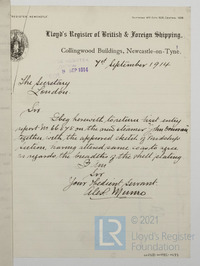 Lloyd's Register of British & Foreign Shipping.
Collingwood Buildings, Newcastle-on-Tyne.
7th September 1914
The Secretary
London
Sir
I beg herewith to return first entry
report No 66678 on the
together with the approved sketch of midship
section, having altered same so as to agree
as regards the breadths of the shell plating
I am
Sir
Your obedient servant
Alex Munro
© 2021
LR
Lloyd's Register
Foundation